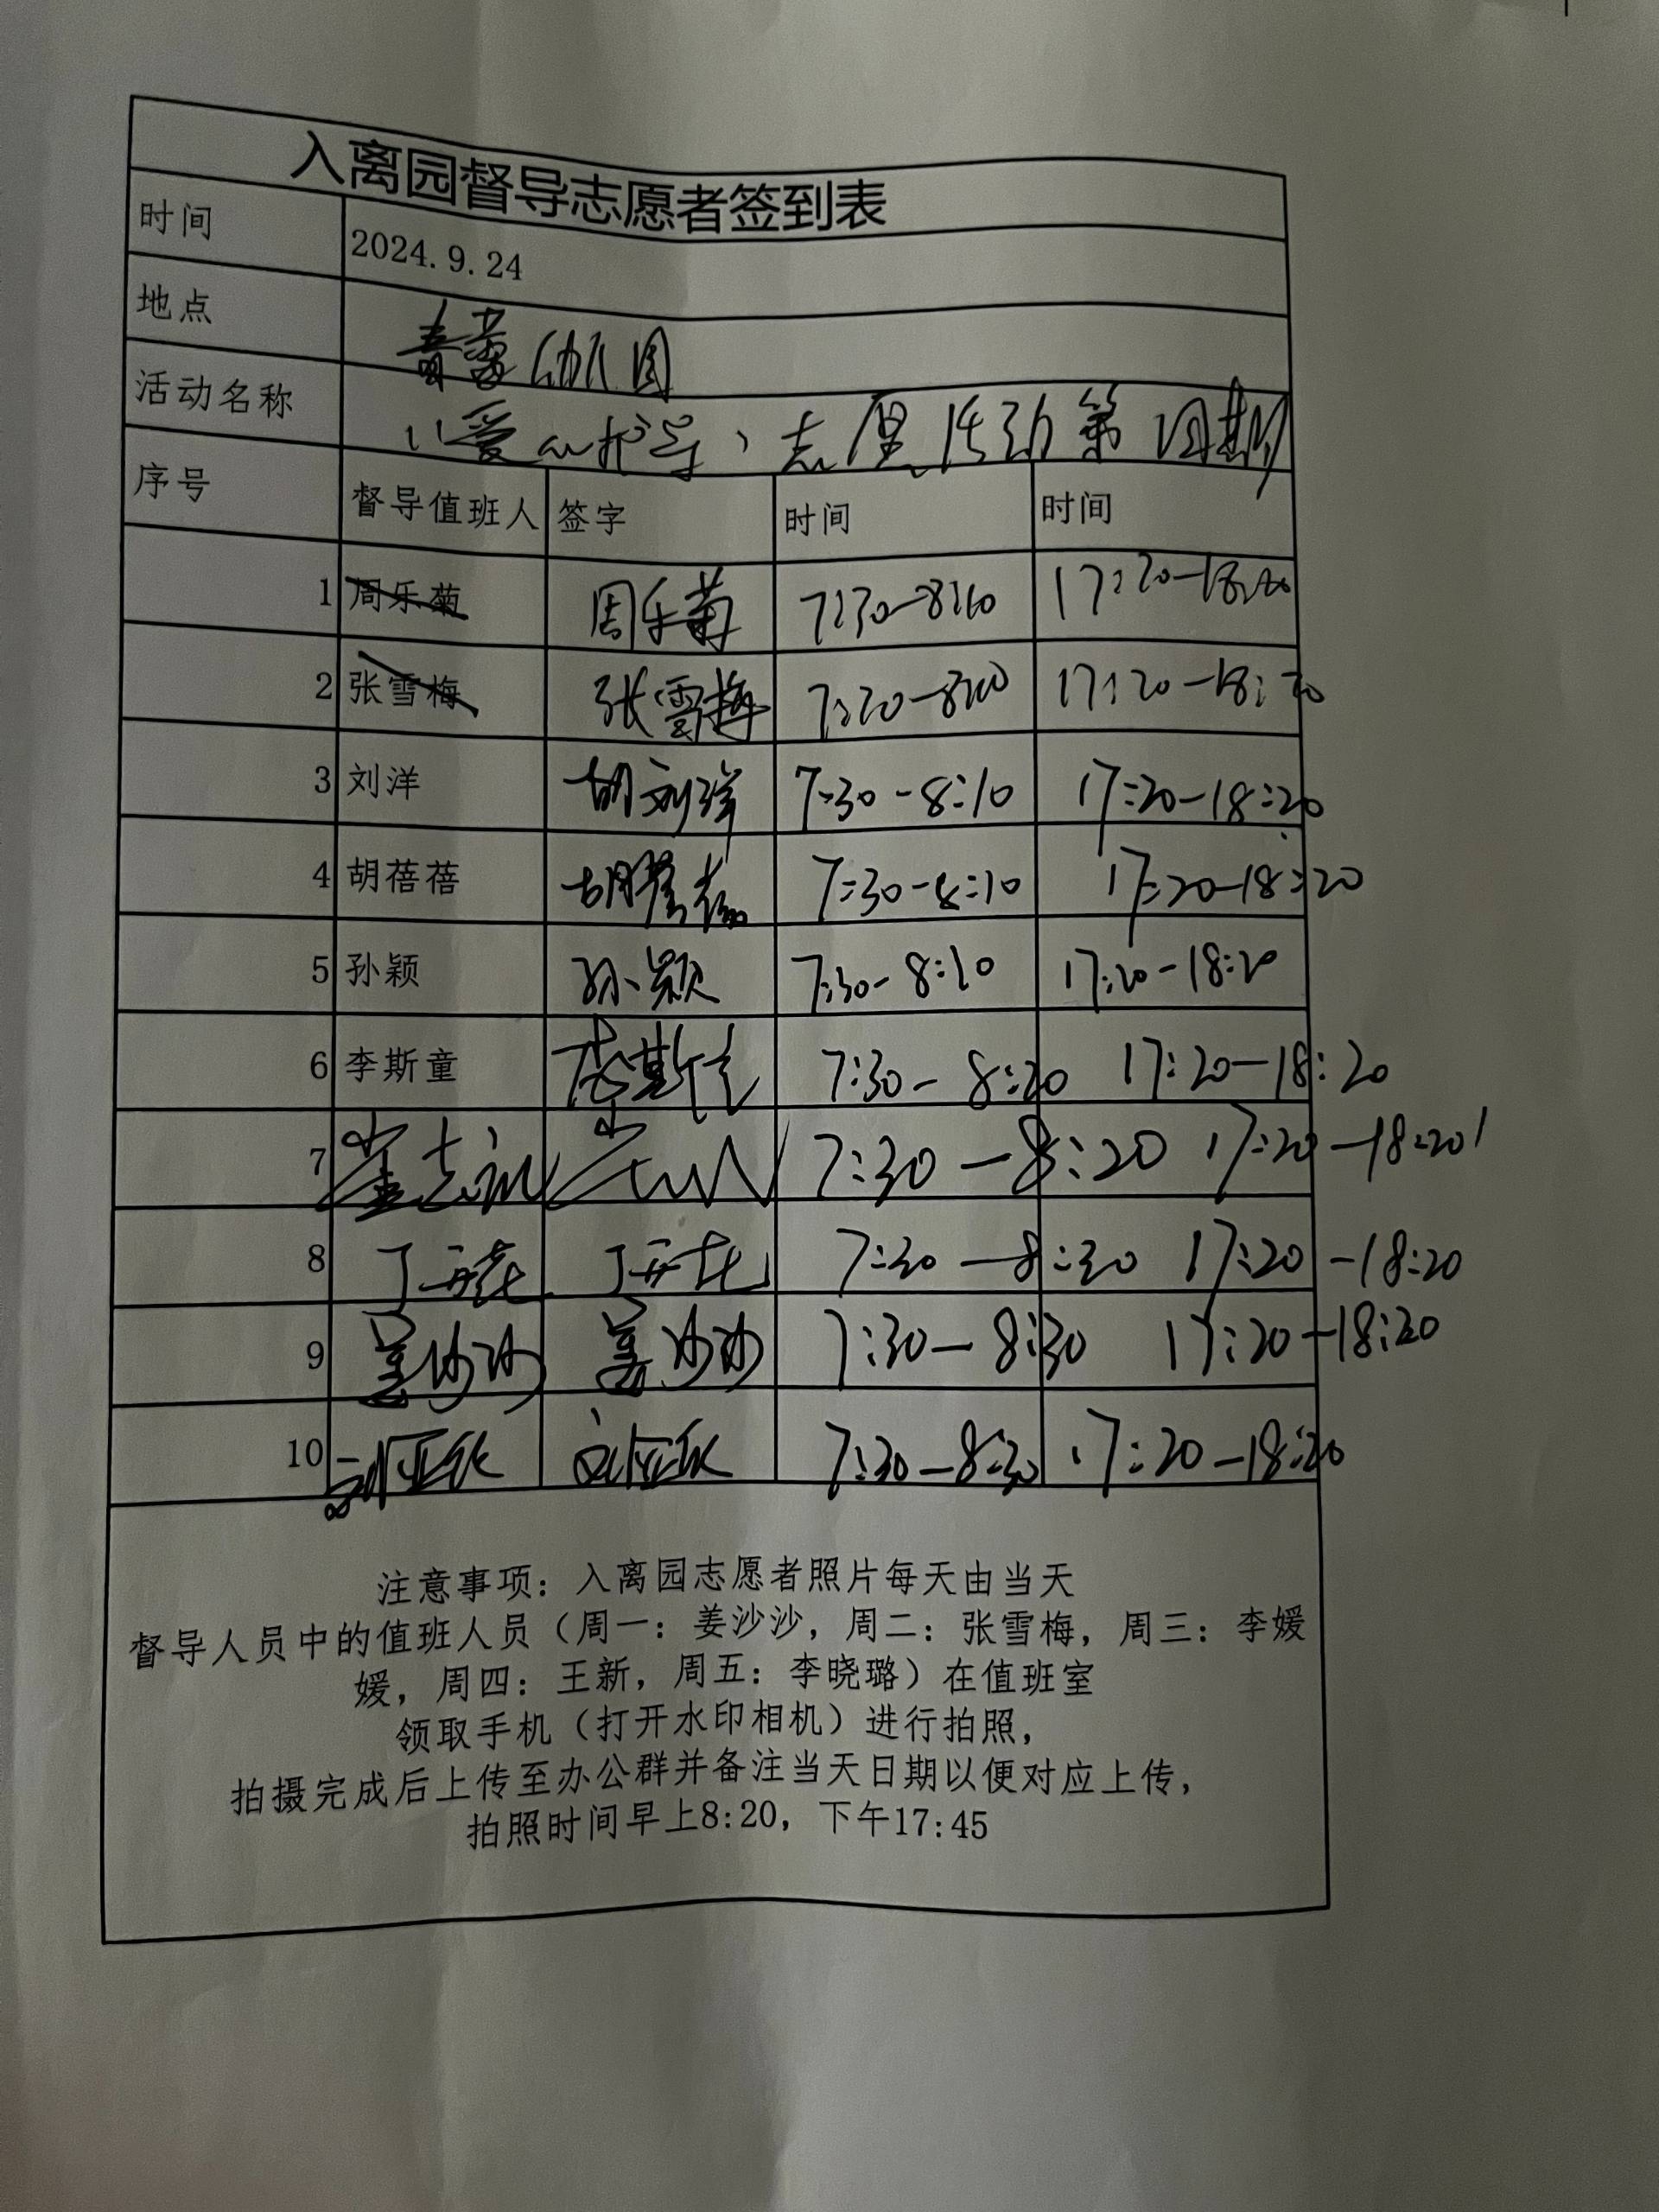 入离园督导志愿者签到表
时间 2024.9.24
地点 青蕾幼儿园
活动名称 “爱心护导”志愿活动第四期
序号 督导值班人 签字 时间 时间
1 周乐菊 周乐菊 7:30-8:10 17:20-18:20
2 张雪梅 张雪梅 7:20-8:10 17:20-18:20
3 刘洋 刘洋 7:30-8:10 17:20-18:20
4 胡蓓蓓 胡蓓蓓 7:30-8:10 17:20-18:20
5 孙颖 孙颖 7:30-8:10 17:20-18:20
6 李斯童 李斯童 7:30-8:20 17:20-18:20
7 7:30-8:20 17:20-18:20
8 7:30-8:30 17:20-18:20
9 姜沙沙 姜沙沙 7:30-8:30 17:20-18:20
10 7:30-8:30 17:20-18:20
注意事项：入离园志愿者照片每天由当天
督导人员中的值班人员（周一：姜沙沙，周二：张雪梅，周三：李媛
媛，周四：王新，周五：李晓璐）在值班室
领取手机（打开水印相机）进行拍照，
拍摄完成后上传至办公群并备注当天日期以便对应上传，
拍照时间早上8:20，下午17:45